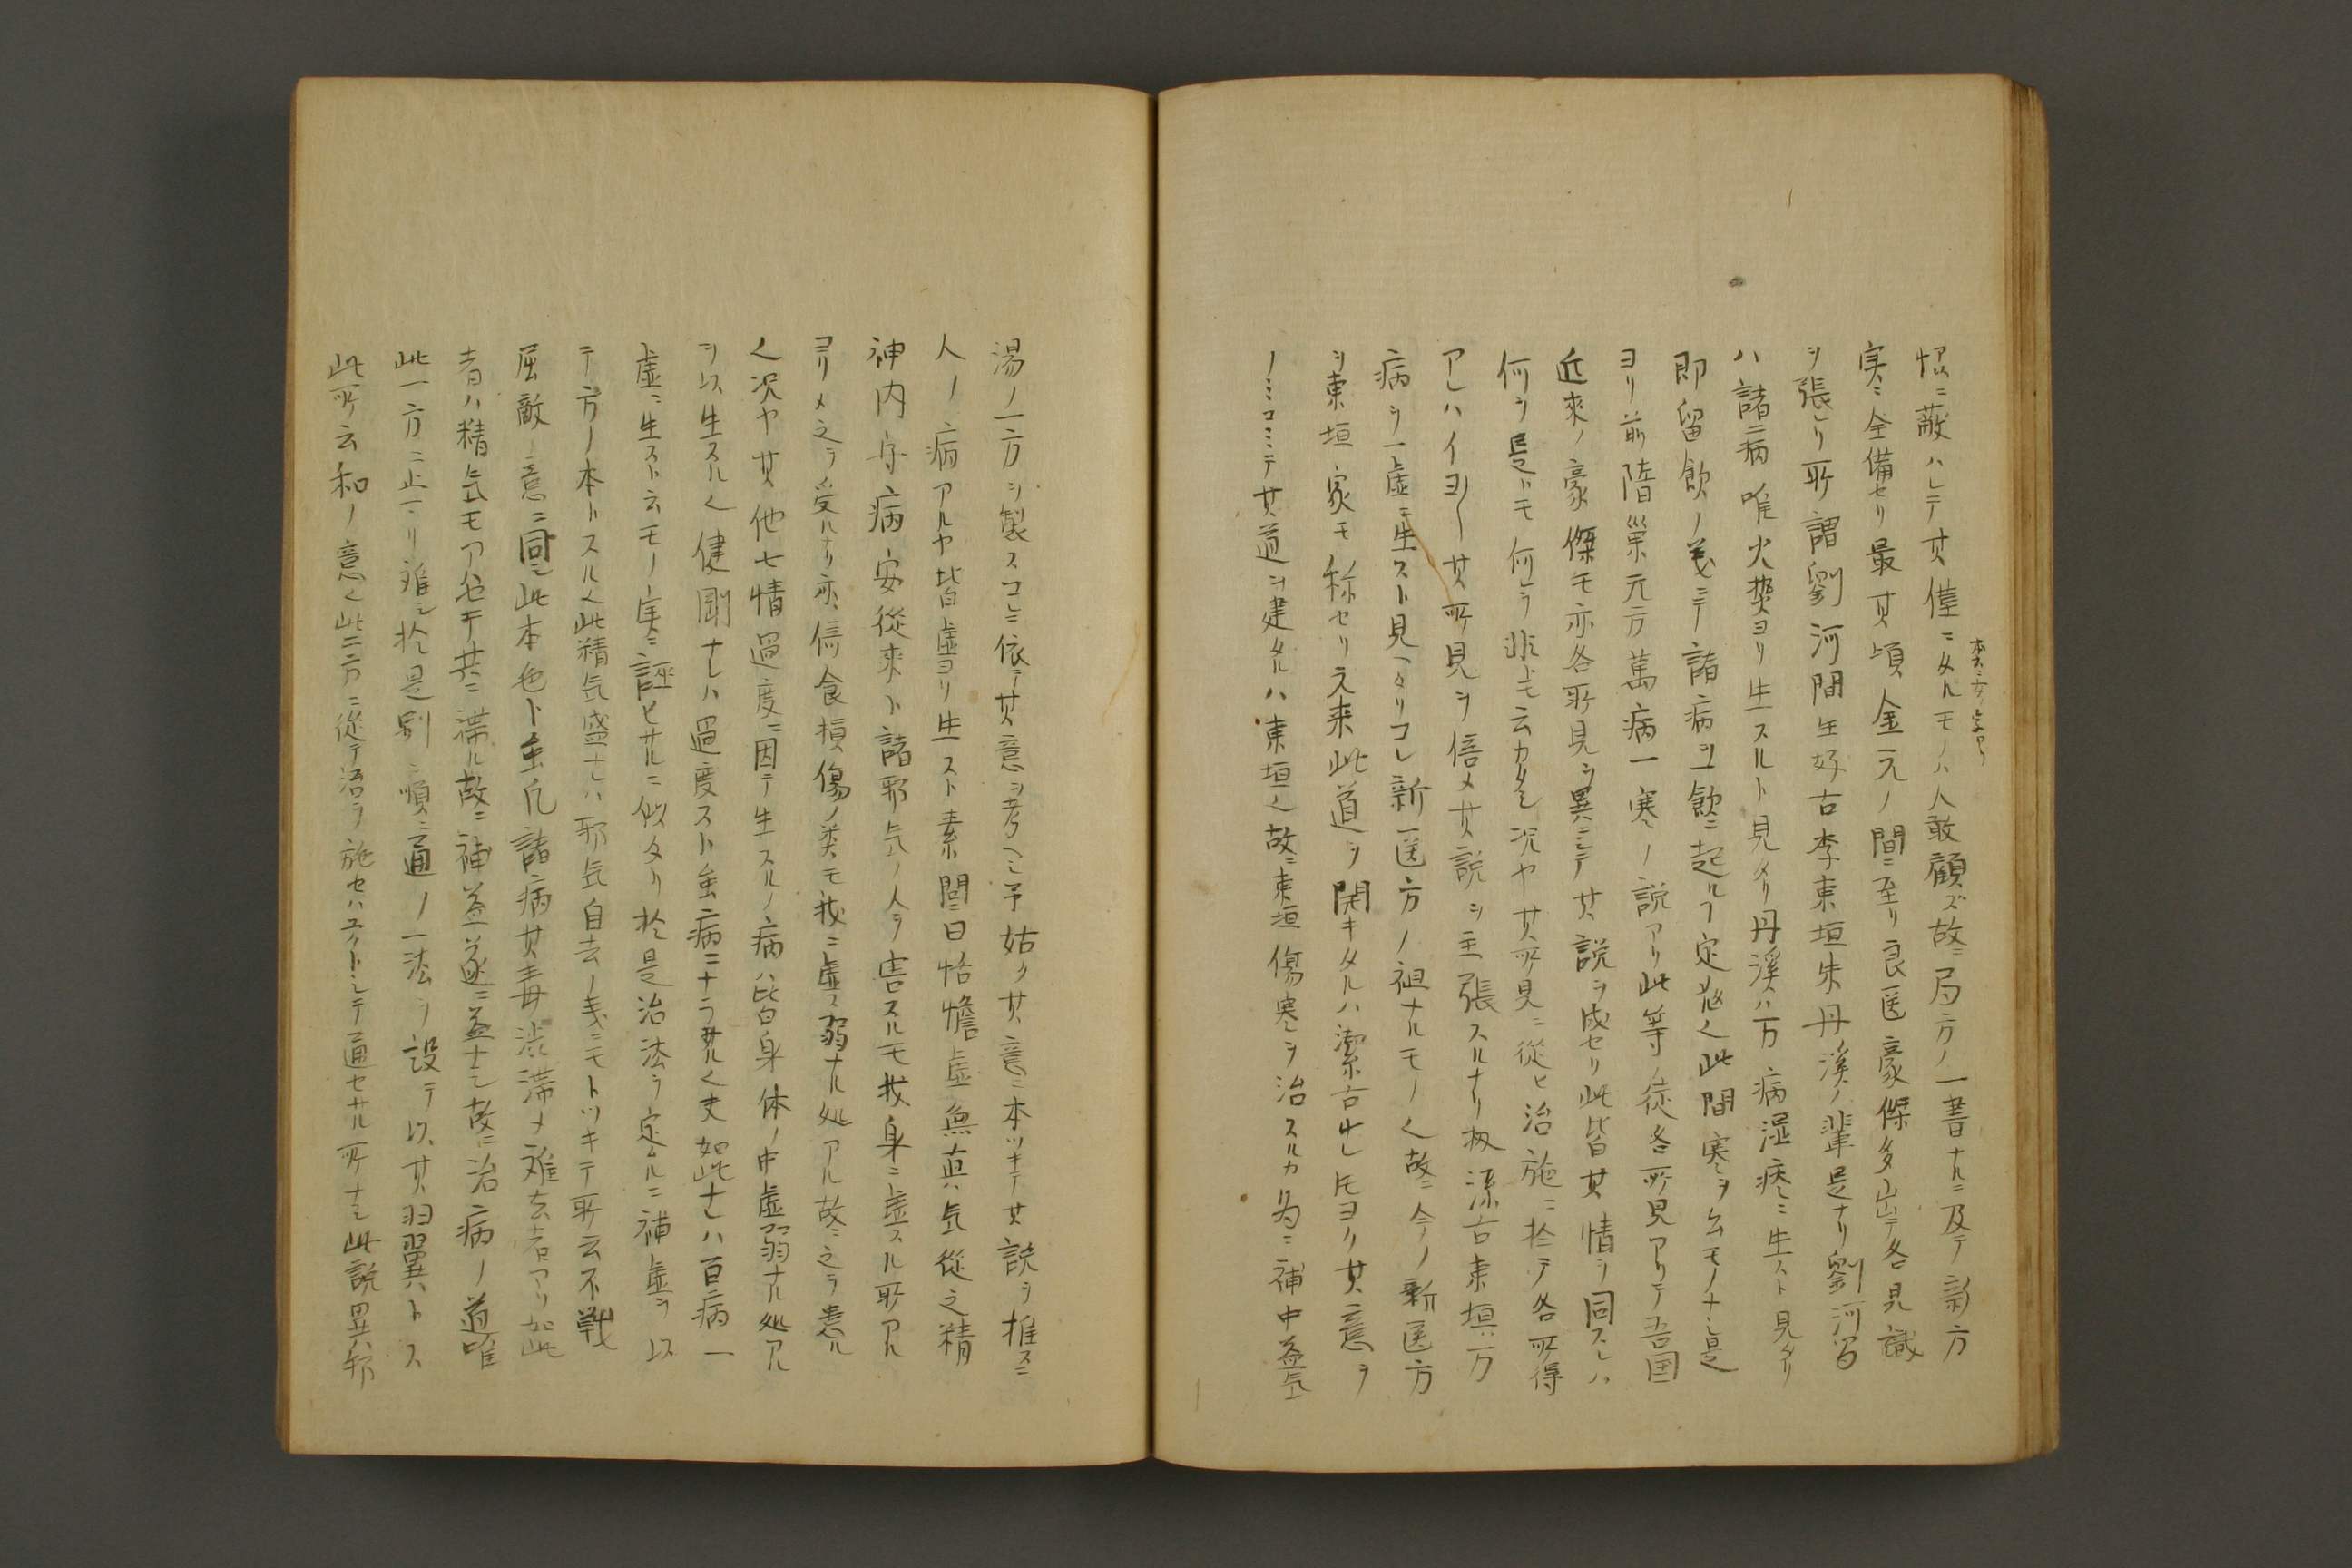 ニ蔽ハレテ其僅ニタルモノハ人敢顧ズ故ニ局方ノ一書ナルニ及テ新方
実ニ全備セリ最其頃金元ノ間ニ至リ良医豪傑多出テ各見識
ヲ張レリ所謂劉河間王好古李東垣朱丹溪ノ輩是ナリ劉河間
ハ諸病唯火熱ヨリ生スルト見タリ丹溪ハ万病湿痰ニ生スト見タリ
即留飲ノ義ニテ諸病ヨリ飲ニ起ルヿ定ル也此間寒ヲ云モノナシ是
ヨリ前隋巣元方萬病一寒ノ説アリ此等ノ徒各所見アリテ吾国
近來ノ豪傑モ亦各所見ヲ異ニシテ其説ヲ成セリ此皆其情ヲ同スレハ
何ヲ是トモ何ヲ非トモ云カタシ况ヤ其所見ニ從ヒ治施ニ於テ各所得
アレハイヨ〱其所見ヲ倍メ其説ヲ主張スルナリ扨潔古東垣ハ万
病ヲ一虚ニ生スト見ヘタリコレ新医方ノ祖ナルモノ也故ニ今ノ新医方
ヲ東垣家モ称セリ元来此道ヲ開キタルハ潔古ナレ𪜈ヨリ其意ヲ
ノミコミテ其道ヲ建タルハ東垣也故ニ東垣傷寒ヲ治スルカ為ニ補中益気
湯ノ一方ヲ製スコレニ依テ其意ヲ考ヘシ予姑ク其意ニ本ツキテ其説ヲ推スニ
人ノ病アルヤ皆虚ヨリ生スト素問ニ曰恬憺虚無真気從之精
神内守病安從來ト諸邪気ノ人ヲ害スルモ我身ニ虚スル所アル
ヨリメ之ヲ受ルナリ亦飲食損傷ノ類モ我ニ虚弱ナル処アル故ニ之ヲ患ル
也况ヤ其他七情過度ニ因テ生スルノ病ハ皆身体ノ中虚弱ナル処アル
ヲ以生スル也健剛ナレハ過度スト虽病ニナラサル也夫如此ナレハ百病一
虚ニ生スト云モノ実ニ誣ヒサルニ似タリ於是治法ヲ定ルニ補虚ヲ以
テ方ノ本トスル也此精気盛ナレハ邪気自去ノ義ニモトツキテ所云不戦
屈敵ノ意ニ同シ此本也ト虽凡諸病其毒渋滞メ難去者アリ如此
者ハ精気モアセキ共ニ滞ル故ニ補益遂ニ益ナシ故ニ治病ノ道唯
此一方ニ止マリ難シ於是別ニ順ニ通ノ一法ヲ設テ以其羽翼トス
此所云和ノ意也此二方ニ從テ治ヲ施セハ トシテ通セサル所ナシ此説異